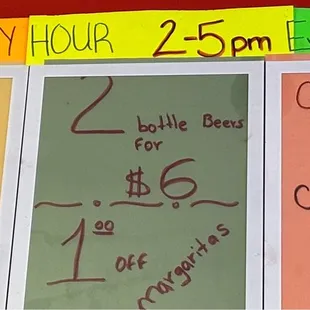 Y HOUR 2-5pm E
2 bottle Beers
For
$6
1.00 OFF
margaritas